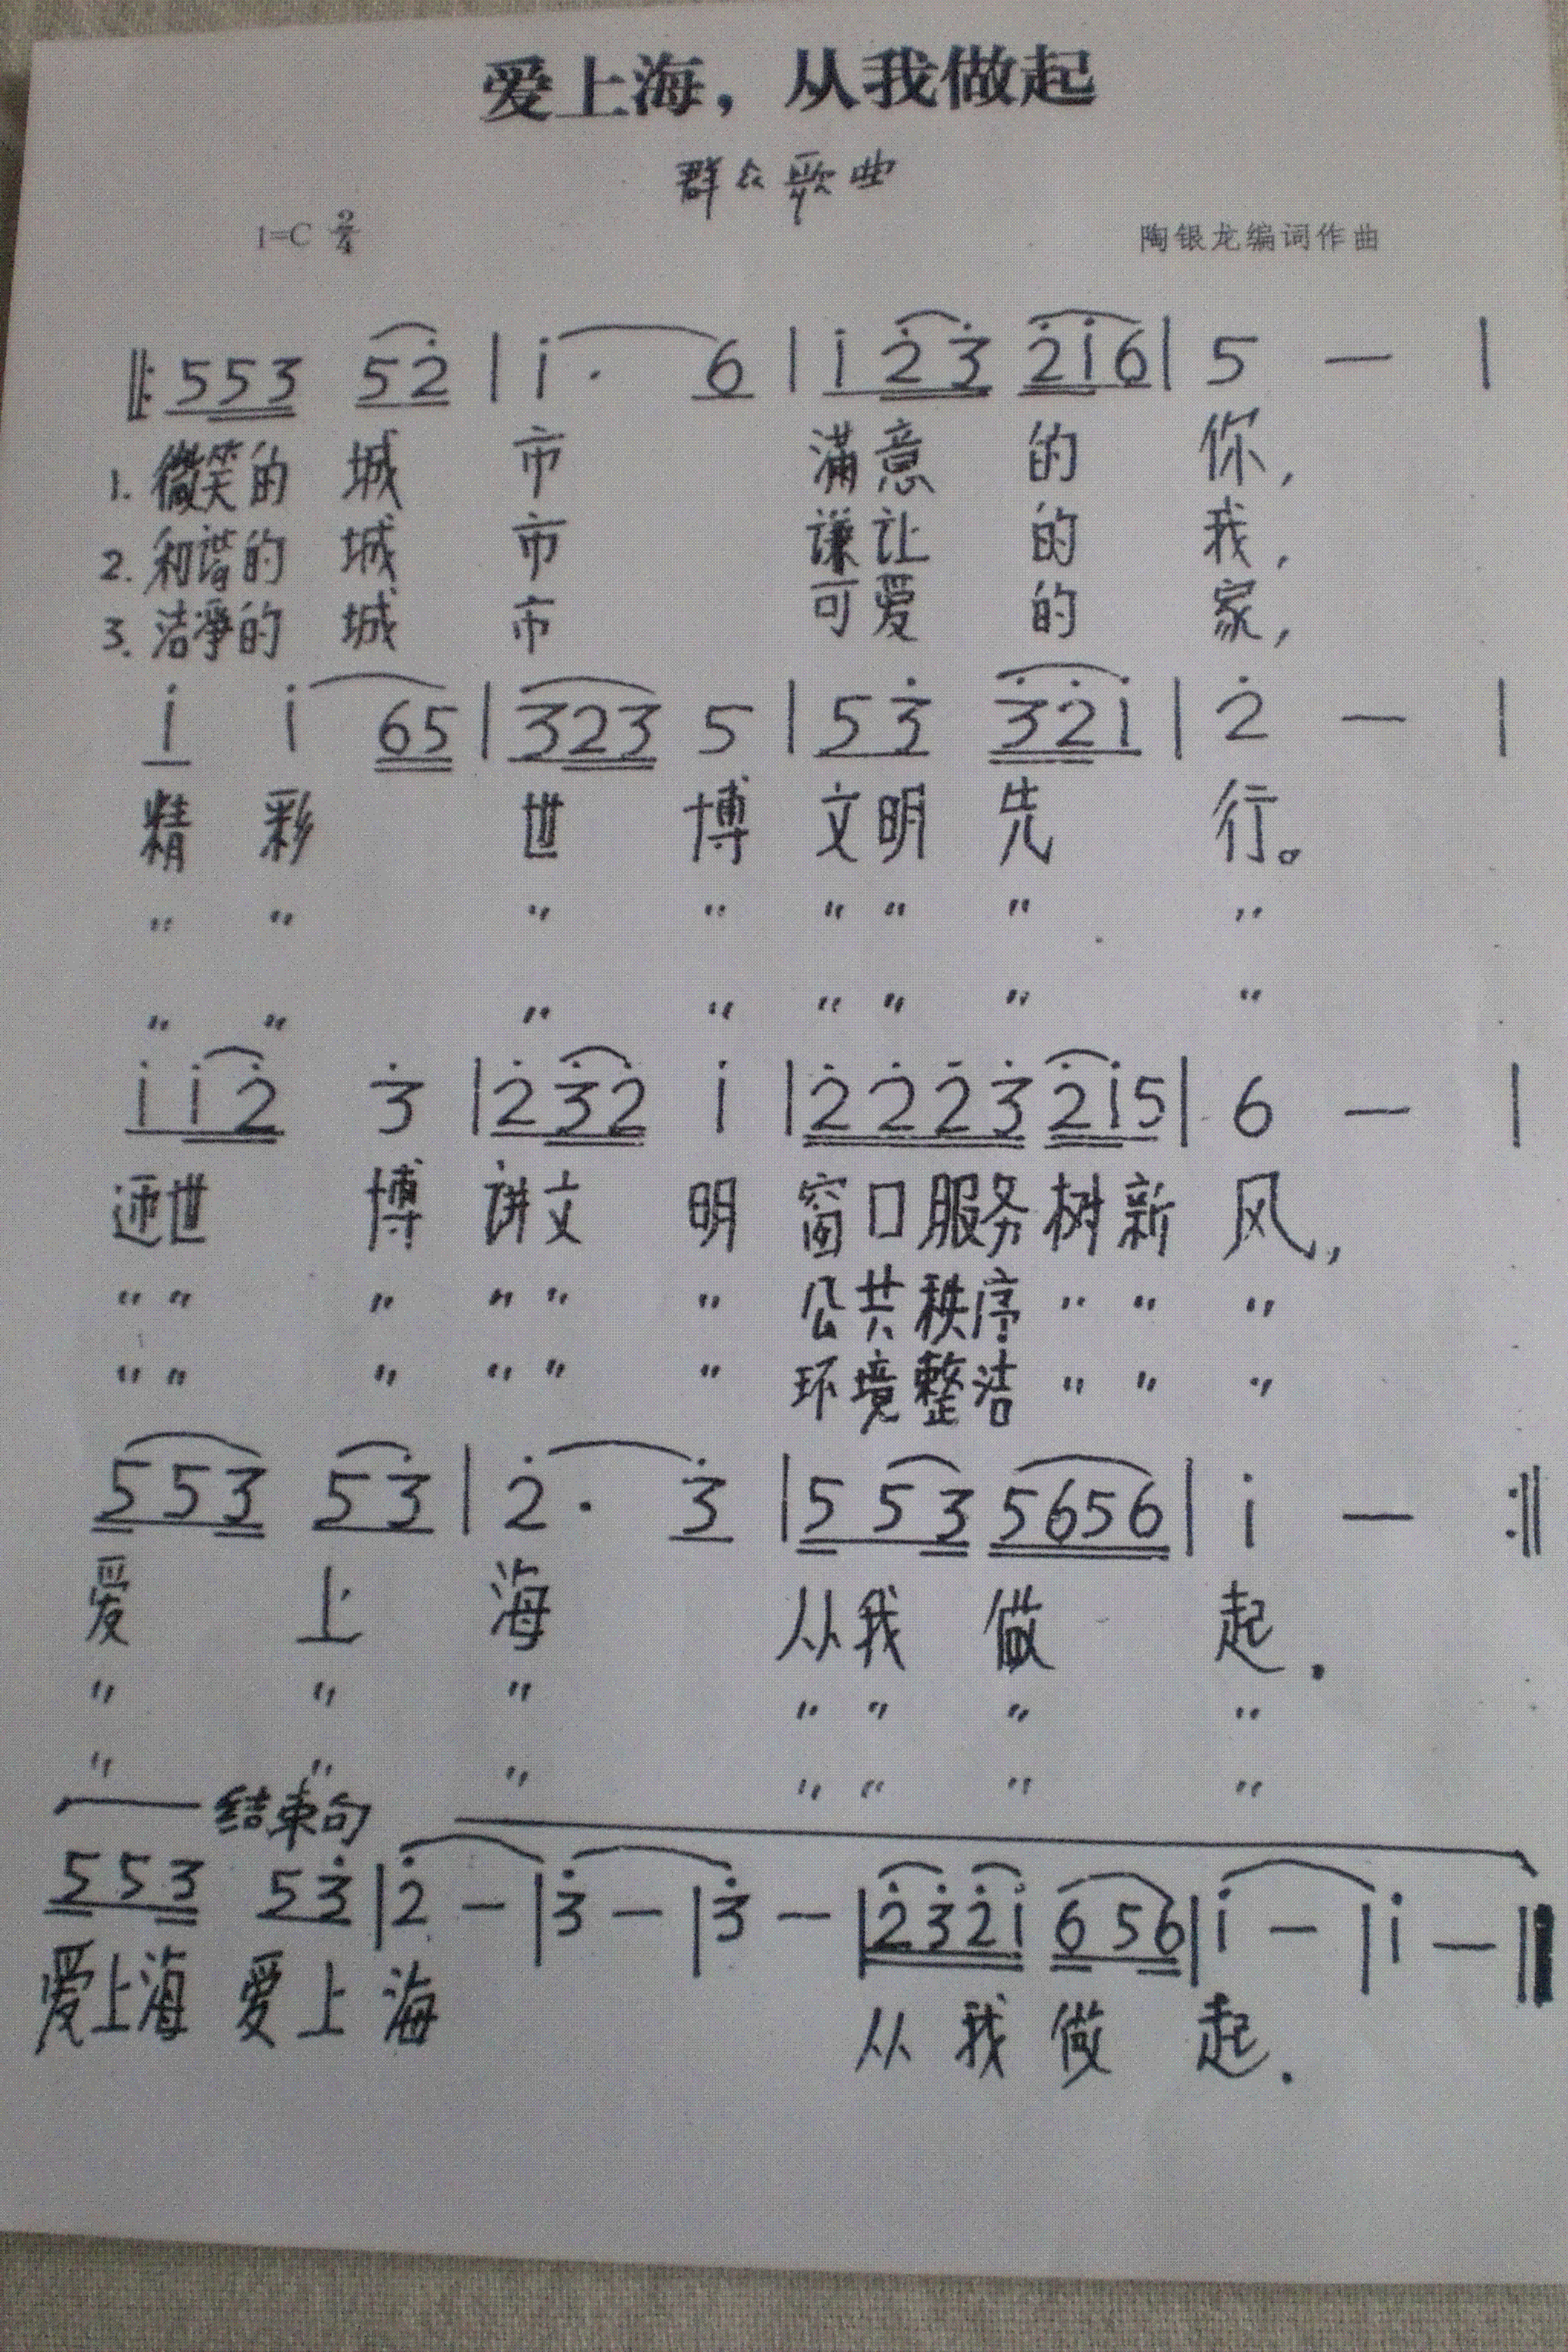 爱上海，从我做起
群众歌曲
1=C 2/4
陶银龙编词作曲
‖: 553 52̇ | i̇· 6 | i̇ 2̇3̇ 2̇i̇6 | 5 — |
1. 微笑的 城 市 满意 的 你,
2. 和谐的 城 市 谦让 的 我,
3. 洁净的 城 市 可爱 的 家,
i̇ i̇ 65 | 323 5 | 53̇ 3̇2̇i̇ | 2̇ — |
精 彩 世 博 文明 先 行。
" " " " " " " "
" " " " " " " "
i̇i̇2̇ 3̇ | 2̇3̇2̇ i̇ | 2̇2̇2̇3̇ 2̇i̇5 | 6 — |
迎世 博 讲文 明 窗口服务 树新 风,
" " " " " " 公共秩序 " " "
" " " " " " 环境整洁 " " "
553̇ 53̇ | 2̇· 3̇ | 5 53 5656 | i̇ — :‖
爱 上 海 从我 做 起.
" " " " " " "
" " " " " " "
结束句
553 53̇ | 2̇ — | 3̇ — | 3̇ — | 2̇3̇2̇i̇ 656 | i̇ — | i̇ — ‖
爱上海 爱上 海 从我做 起.